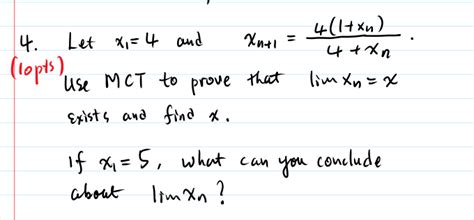 4. Let x₁ = 4 and xₙ₊₁ = 4(1+xₙ) / 4+xₙ .
(10pts) Use MCT to prove that lim xₙ = x
exists and find x.
If x₁ = 5, what can you conclude
about lim xₙ ?